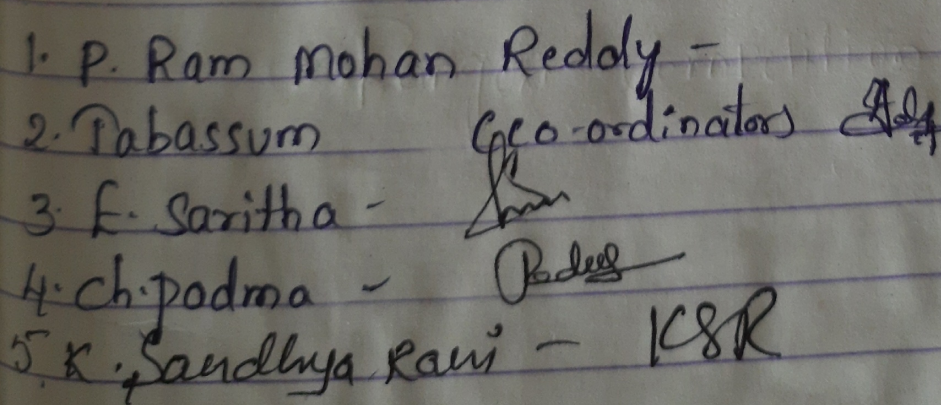 1. P. Ram Mohan Reddy -
2. Tabassum Co-ordinators
3. E. Saritha -
4. Ch. padma -
5. K. Sandhya Rani - KSR